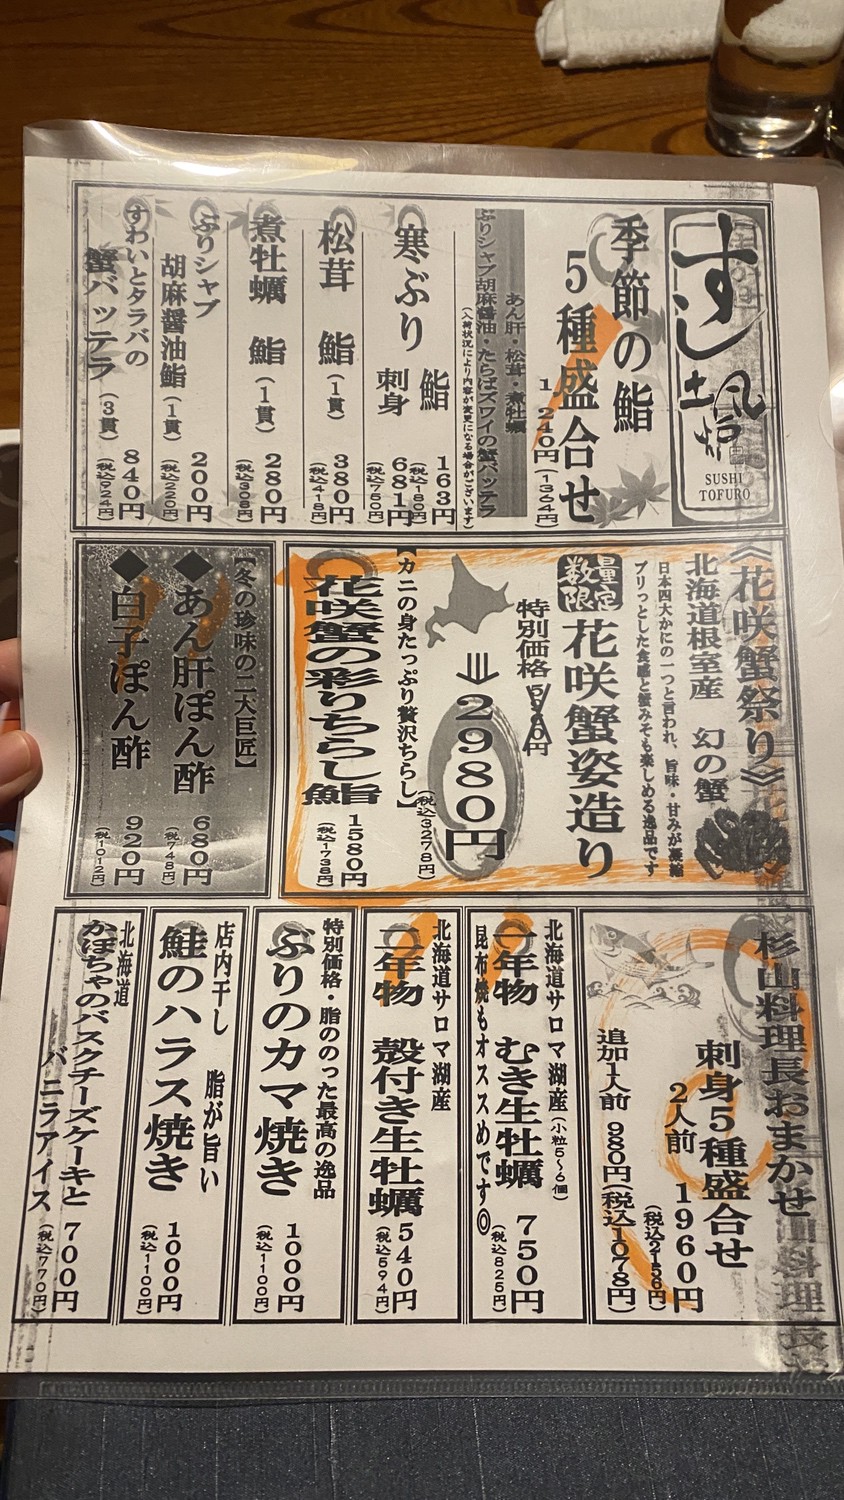 すし土風炉
SUSHI
TOFURO
季節の鮨
5種盛合せ
1,240円(1364円)
あん肝・松茸・煮牡蠣
ぶりシャブ胡麻醤油・たらばズワイの蟹バッテラ
(入荷状況により内容が変更になる場合がございます)
寒ぶり 鮨 163円(税込180円)
刺身 681円(税込750円)
松茸 鮨(1貫) 380円(税込418円)
煮牡蠣 鮨(1貫) 280円(税込308円)
ぶりシャブ
胡麻醤油鮨(1貫) 200円(税込220円)
ずわいとタラバの
蟹バッテラ(3貫) 840円(税込924円)
《花咲蟹祭り》
北海道根室産 幻の蟹
日本四大かにの一つと言われ、旨味・甘みが凝縮
プリっとした食感と蟹みそも楽しめる逸品です
数量限定
花咲蟹姿造り
特別価格
⇒2980円
(税込3278円)
【カニの身たっぷり贅沢ちらし】
花咲蟹の彩りちらし鮨 1580円(税込1738円)
【冬の珍味の二大巨匠】
◆あん肝ぽん酢 680円(税748円)
◆白子ぽん酢 920円(税1012円)
杉山料理長おまかせ
刺身5種盛合せ
2人前 1960円(税込2156円)
追加1人前 980円(税込1078円)
北海道サロマ湖産(小粒5〜6個)
一年物 むき生牡蠣 750円(税込825円)
昆布焼もオススメです◎
北海道サロマ湖産
二年物 殻付き生牡蠣 540円(税込594円)
特別価格・脂ののった最高の逸品
ぶりのカマ焼き 1000円(税込1100円)
店内干し 脂が旨い
鮭のハラス焼き 1000円(税込1100円)
北海道
かぼちゃのバスクチーズケーキと
バニラアイス 700円(税込770円)